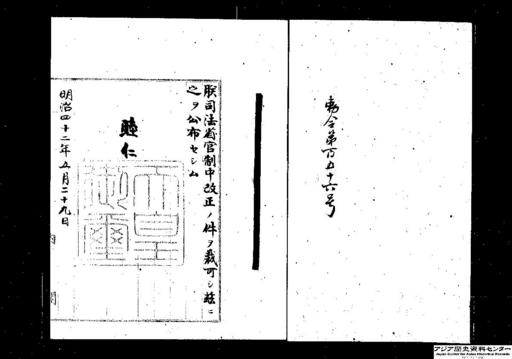 勅令第百五十六号
朕司法省官制中改正ノ件ヲ裁可シ玆ニ
之ヲ公布セシム
睦仁
天皇
御璽
明治四十二年五月二十九日
内閣
アジア歴史資料センター
Japan Center for Asian Historical Records